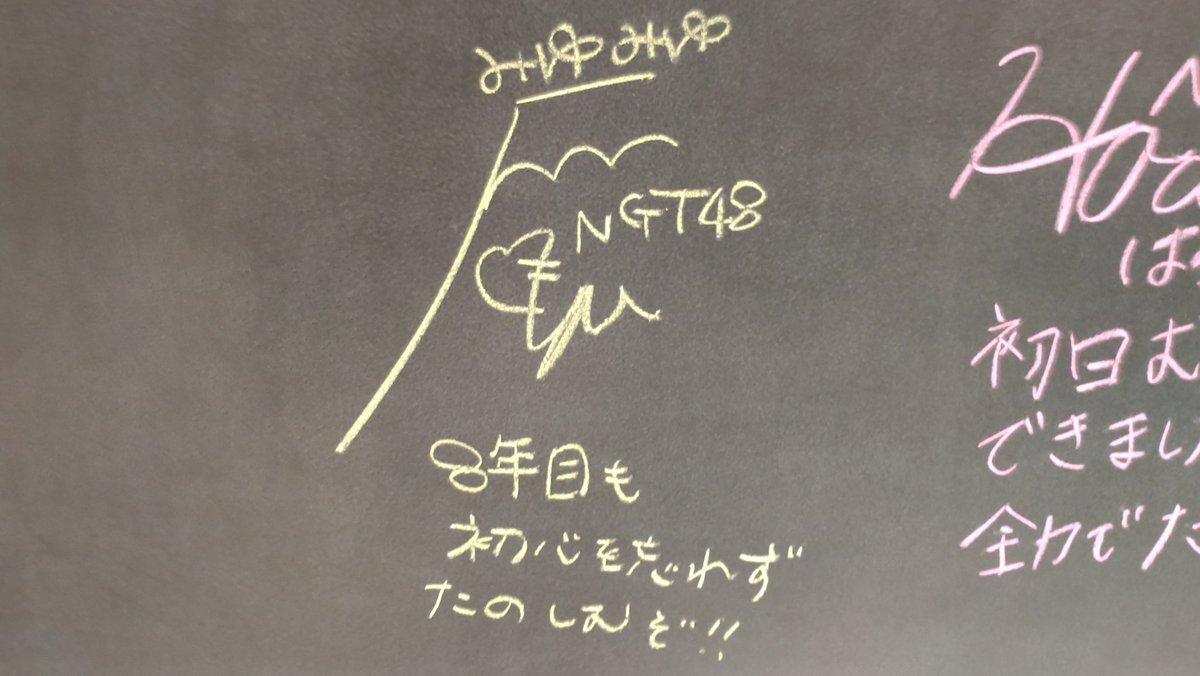 みゆみゆ
NGT48
8年目も
初心を忘れず
たのしむぞ!!
は
初日む
できまし
全力でた